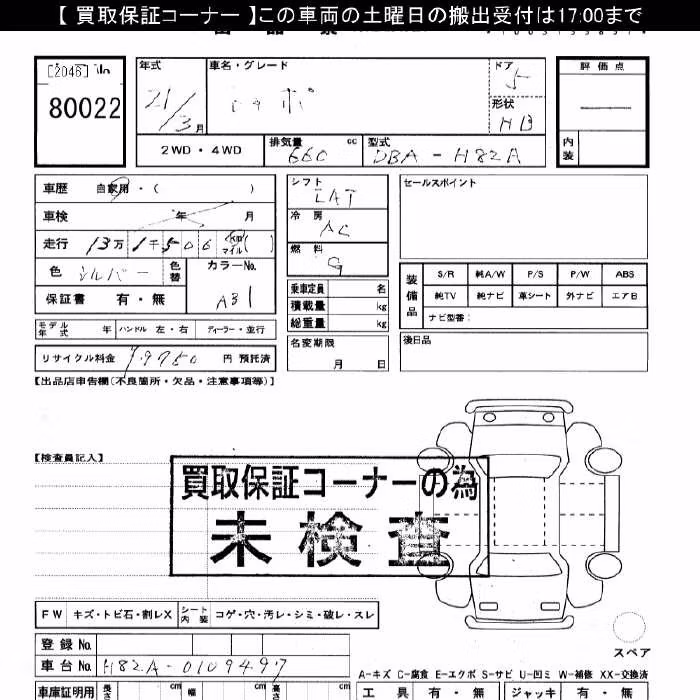 【 買取保証コーナー 】この車両の土曜日の搬出受付は17:00まで
[2046]
80022
年式
21/3月
車名・グレード
トッポ
ドア
5
形状
HB
評価点
内装
2WD・4WD
排気量
660 cc
型式
DBA-H82A
車歴 自家用・( )
車検 年 月
走行 13万 1千506 km マイル ( )
色 シルバー 色替
カラーNo.
A31
保証書 有・無
モデル年式 年 ハンドル 左・右 ディーラー・並行
リサイクル料金 9750 円 預託済
シフト
冷房
AC
燃料
G
乗車定員 名
積載量 kg
総重量 kg
名変期限
月 日
セールスポイント
装備品
S/R 純A/W P/S P/W ABS
純TV 純ナビ 革シート 外ナビ エアB
ナビ型番:
後日品
【出品店申告欄(不良箇所・欠品・注意事項等)】
【検査員記入】
買取保証コーナーの為
未検査
FW キズ・トビ石・割レX シート内装 コゲ・穴・汚レ・シミ・破レ・スレ
スペア
登録 No.
車台 No. H82A-0109497
A-キズ C-腐食 E-エクボ S-サビ U-凹ミ W-補修 XX-交換済
車庫証明用 長さ cm 幅 cm 高さ cm
工具 有・無 ジャッキ 有・無